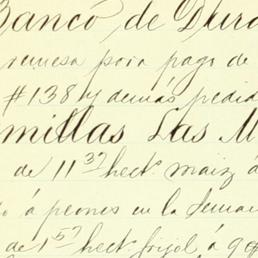 Banco de Dura
remesa para pago de
#138 y demás pedid
milias Las M
de 11 37 hect. maiz á
o á peones en la Sema
de 1 57 hect frijol á 9 #